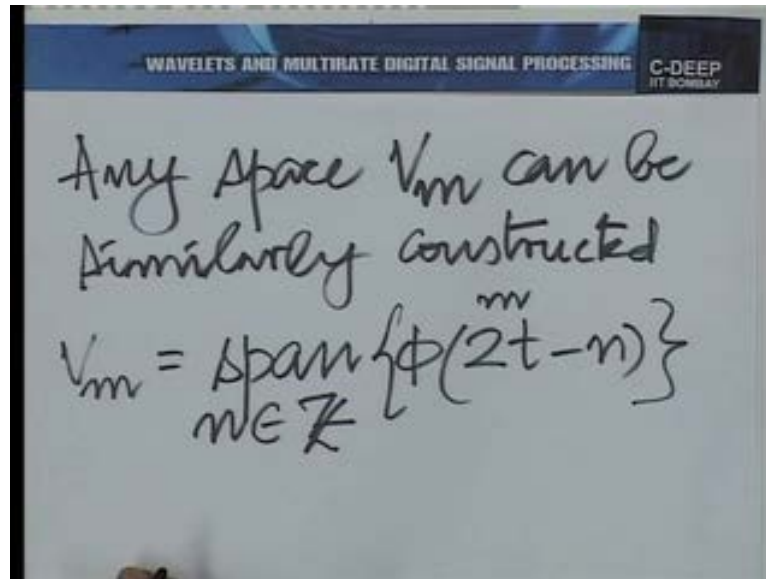 WAVELETS AND MULTIRATE DIGITAL SIGNAL PROCESSING
C-DEEP
IIT BOMBAY
Any space Vₘ can be
similarly constructed
Vₘ = span {φ(2ᵐt-n)}
n∈ℤ